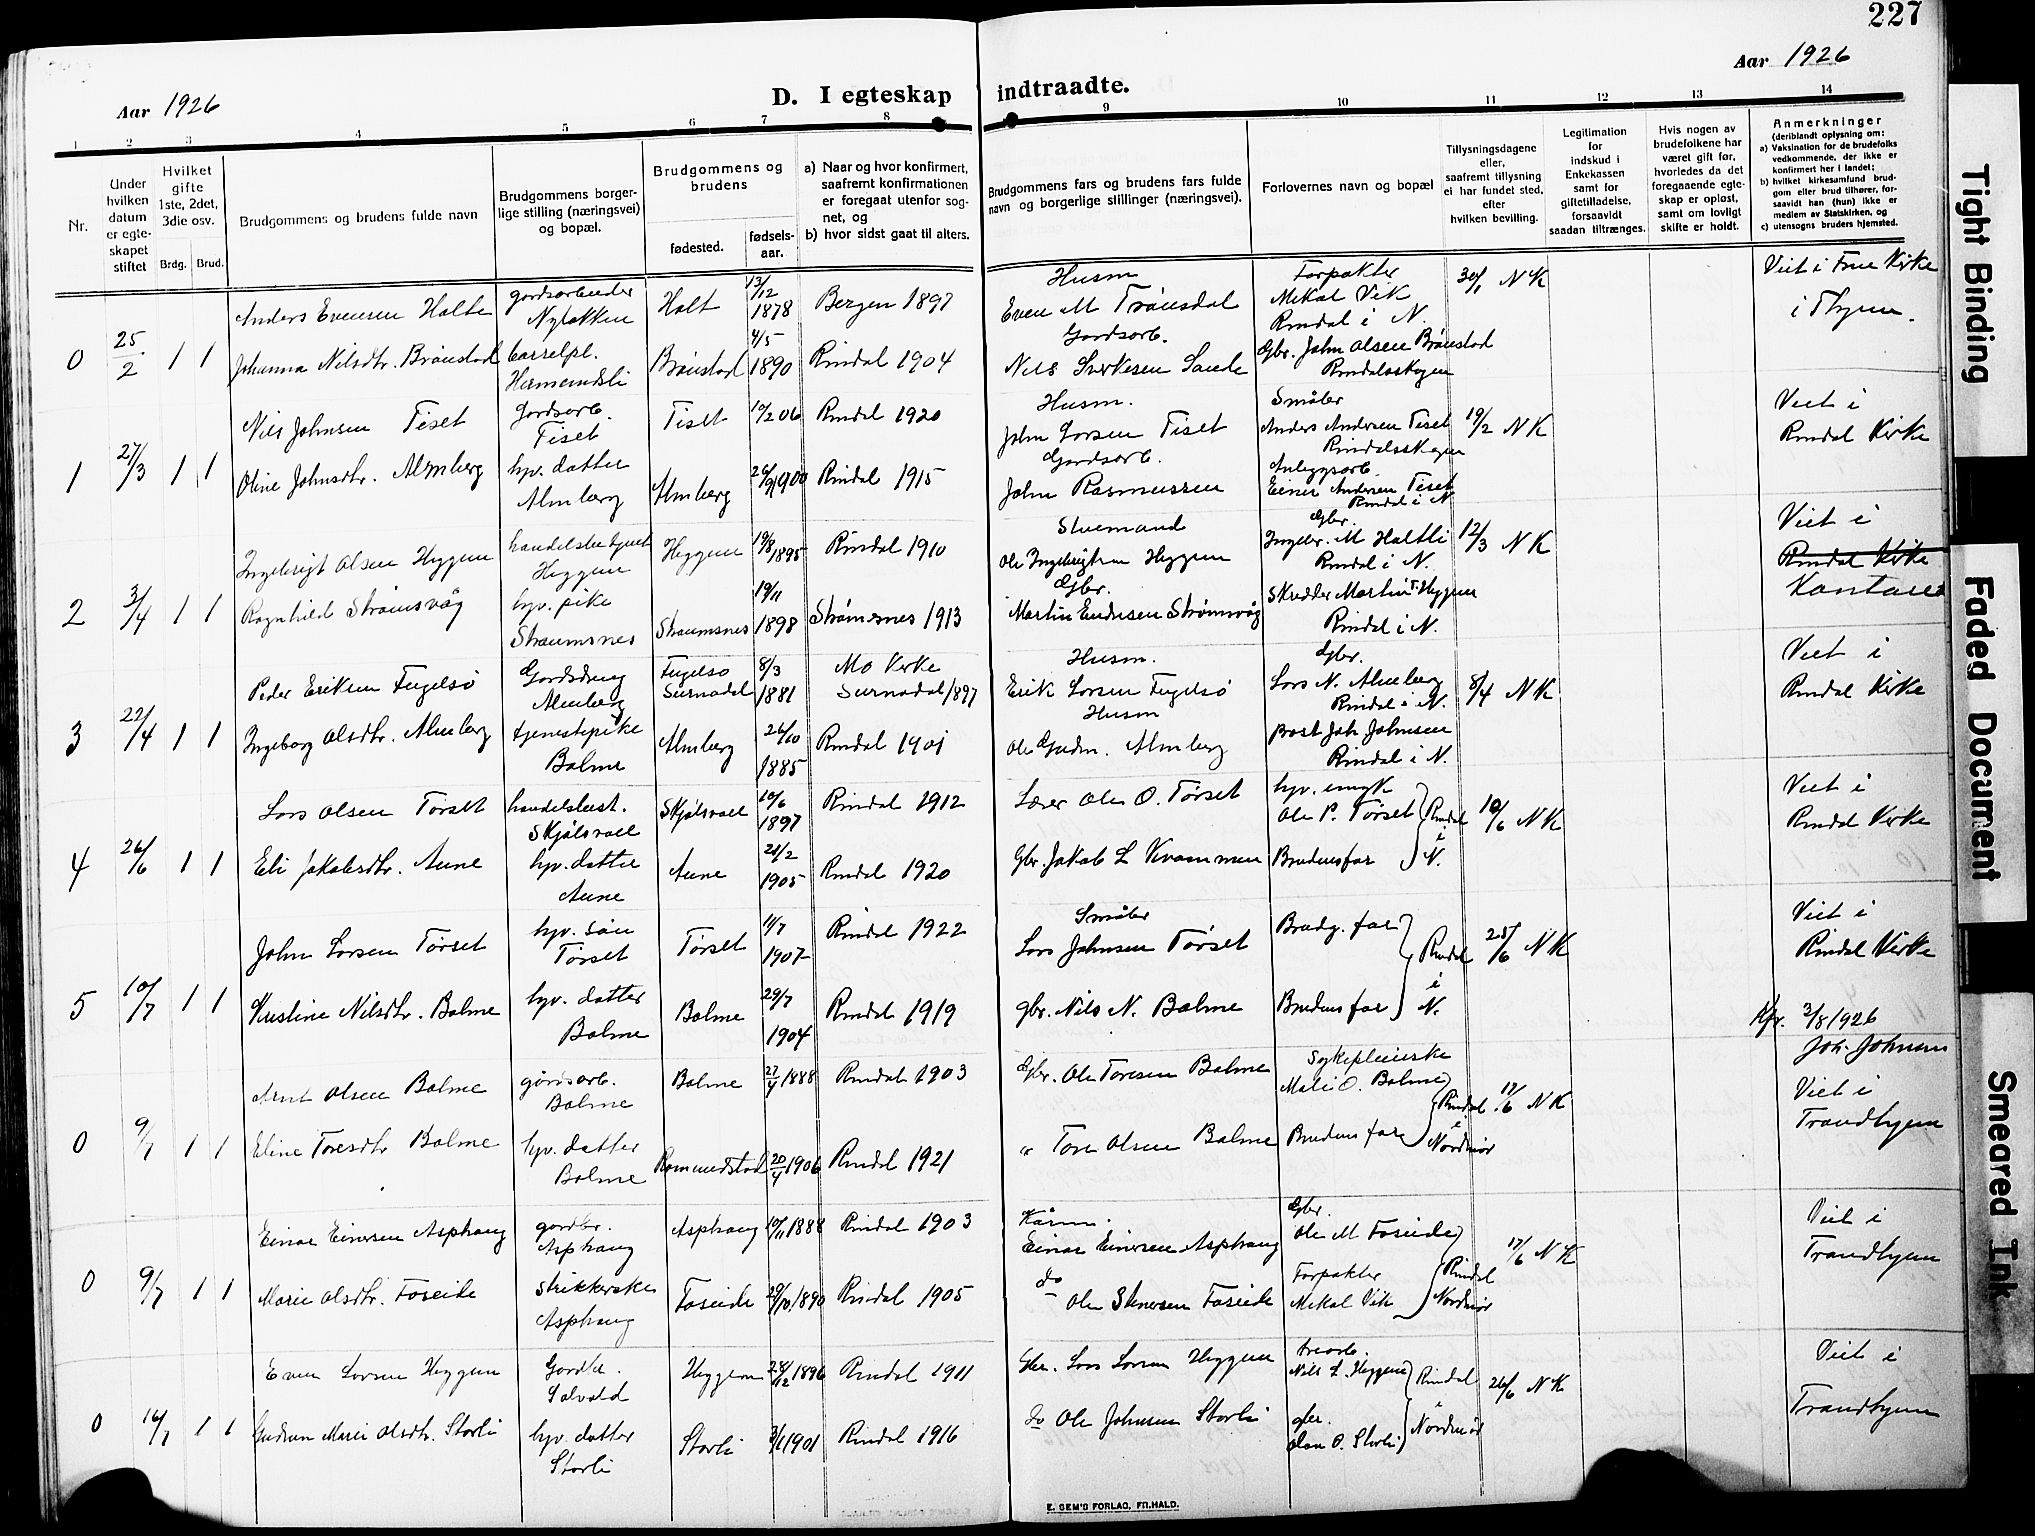 227
Aar 1926
D. I egteskap
indtraadte.
Aar 1926
1 2 3 4 5 6 7 8
9 10 11 12 13 14
Nr.
Under hvilken datum er egteskapet stiftet
Hvilket gifte 1ste, 2det, 3die osv.
Brdg. Brud.
Brudgommens og brudens fulde navn
Brudgommens borgerlige stilling (næringsvei) og bopæl.
Brudgommens og brudens
fødested.
fødselsaar.
a) Naar og hvor konfirmert, saafremt konfirmationen er foregaat utenfor sognet, og
b) hvor sidst gaat til alters.
Brudgommens fars og brudens fars fulde navn og borgerlige stillinger (næringsvei).
Forlovernes navn og bopæl
Tillysningsdagene eller, saafremt tillysning ei har fundet sted, efter hvilken bevilling.
Legitimation for indskud i Enkekassen samt for giftetilladelse, forsaavidt saadan tiltrænges.
Hvis nogen av brudefolkene har været gift før, hvorledes da det foregaaende egteskap er opløst, samt om lovligt skifte er holdt.
Anmerkninger
(deriblandt oplysning om:
a) Vaksination for de brudefolks vedkommende, der ikke er konfirmert her i landet;
b) hvilket kirkesamfund brudgom eller brud tilhører, forsaavidt han (hun) ikke er medlem av Statskirken, og
c) utensogns bruders hjemsted.
0 25/2 1 1
Anders Evensen Halte
gårdsarbeider
Halt 13/12 1878 Bergen 1897
Husm
Even M Trønsdal
Forpakter
Mikal Vik
Rindal i N.
30/1 N K
Viet i Frue Kirke
i Thjem.
Johanna Nilsdtr. Brønstad
Brønstad 4/5 1890 Rindal 1904
Gardsarb.
Nils Sivertsen Sande
Gbr. John Olsen Brønstad
Rindalsskogen
1 27/3 1 1
Nils Johnsen Tiset
Gardsarb.
Tiset
Tiset 10/2 06 Rindal 1920
Husm.
John Larsen Tiset
Småbr
Anders Andersen Tiset
Rindalsskogen
19/2 N K
Viet i
Rindal Kirke
Oline Johnsdtr. Almberg
hjv. datter
Almberg
Almberg 1900 Rindal 1915
Gardsarb.
John Rasmussen
Anleggsarb.
Einar Andersen Tiset
Rindal i N
2 3/4 1 1
Ingebrigt Olsen Heggem
handelsbetjent
Heggem
Heggem 19/8 1895 Rindal 1910
Stuemand
Ole Ingebrigtsen Heggem
Gbr.
Ingebr. M Haltli
Rindal i N.
12/3 N K
Viet i
Rindal Kirke
Ragnhild Strømsvåg
hjv. pike
Straumsnes
Straumsnes 19/11 1898 Strømsnes 1913
Gbr.
Martin Endresen Strømsvåg
Skredder Martin I. Heggem
Rindal i N.
3 22/4 1 1
Peder Eriksen Fugelsø
Gårdsdreng
Almberg
Fugelsø
Surnadal 8/3 1881
Mo Kirke
Surnadal 1897
Husm.
Erik Larsen Fugelsø
Gbr.
Lars N. Almberg
Rindal i N.
8/4 N K
Viet i
Rindal Kirke
Ingeborg Olsdtr. Almberg
tjenestepike
Bolme
Almberg 26/10 1885 Rindal 1901
Husm
Ole Gudm. Almberg
Post Joh Johnsen
Rindal i N.
4 26/6 1 1
Lars Olsen Tørset
handelsbest.
Skjølsvoll
Skjølsvoll 10/6 1897 Rindal 1912
Lærer Ole O. Tørset
Ole P. Tørset
Rindal i N.
10/6 N K
Viet i
Rindal Kirke
Eli Jakobsdtr. Aune
hjv. datter
Aune
Aune 21/2 1905 Rindal 1920
Gbr. Jakob L Kvammen
Brudens far
5 10/7 1 1
John Larsen Tørset
hjv. søn
Tørset
Tørset 11/7 1907 Rindal 1922
Småbr
Lars Johnsen Tørset
Brudg. far
Rindal i N.
25/6 N K
Viet i
Rindal Kirke
Kristine Nilsdtr. Bolme
hjv. datter
Bolme
Bolme 29/7 1904 Rindal 1919
gbr. Nils N. Bolme
Brudens far
Kfr. 3/8 1926
Joh. Johnsen
0 9/7 1 1
Arnt Olsen Bolme
gårdsarb.
Bolme
Bolme 27/4 1888 Rindal 1903
Gbr. Ole Toresen Bolme
Sykepleierske
Mali O. Bolme
Rindal i Nordmør
17/6 N K
Viet i
Trondhjem
Eline Toresdtr Bolme
hjv. datter
Bolme
Romundstad 20/4 1906 Rindal 1921
" Tore Olsen Bolme
Brudens far
0 9/7 1 1
Einar Einersen Asphaug
gardbr.
Asphaug
Asphaug 19/11 1888 Rindal 1903
Kårm.
Einar Einersen Asphaug
Gbr.
Ole M Foseide
Rindal Nordmør
17/6 N K
Viet i
Trondhjem
Marie Olsdtr. Foseide
strikkerske
Asphaug
Foseide 29/10 1890 Rindal 1905
do
Ole Stenersen Foseide
Forpakter
Mikal Vik
0 16/7 1 1
Even Larsen Heggem
Gardbr.
Solvold
Heggem 28/12 1896 Rindal 1911
Gbr. Lars Larsen Heggem
Nils L. Heggem
Rindal i Nordmør
26/6 N K
Viet i
Trondhjem
Gudrun Marie Olsdtr. Storli
hjv. datter
Storli
Storli 3/1 1901 Rindal 1916
do Ole Johnsen Storli
gbr.
Olau O. Storli
E. SEM'S FORLAG, FR.HALD.
Tight Binding
Faded Document
Smeared Ink